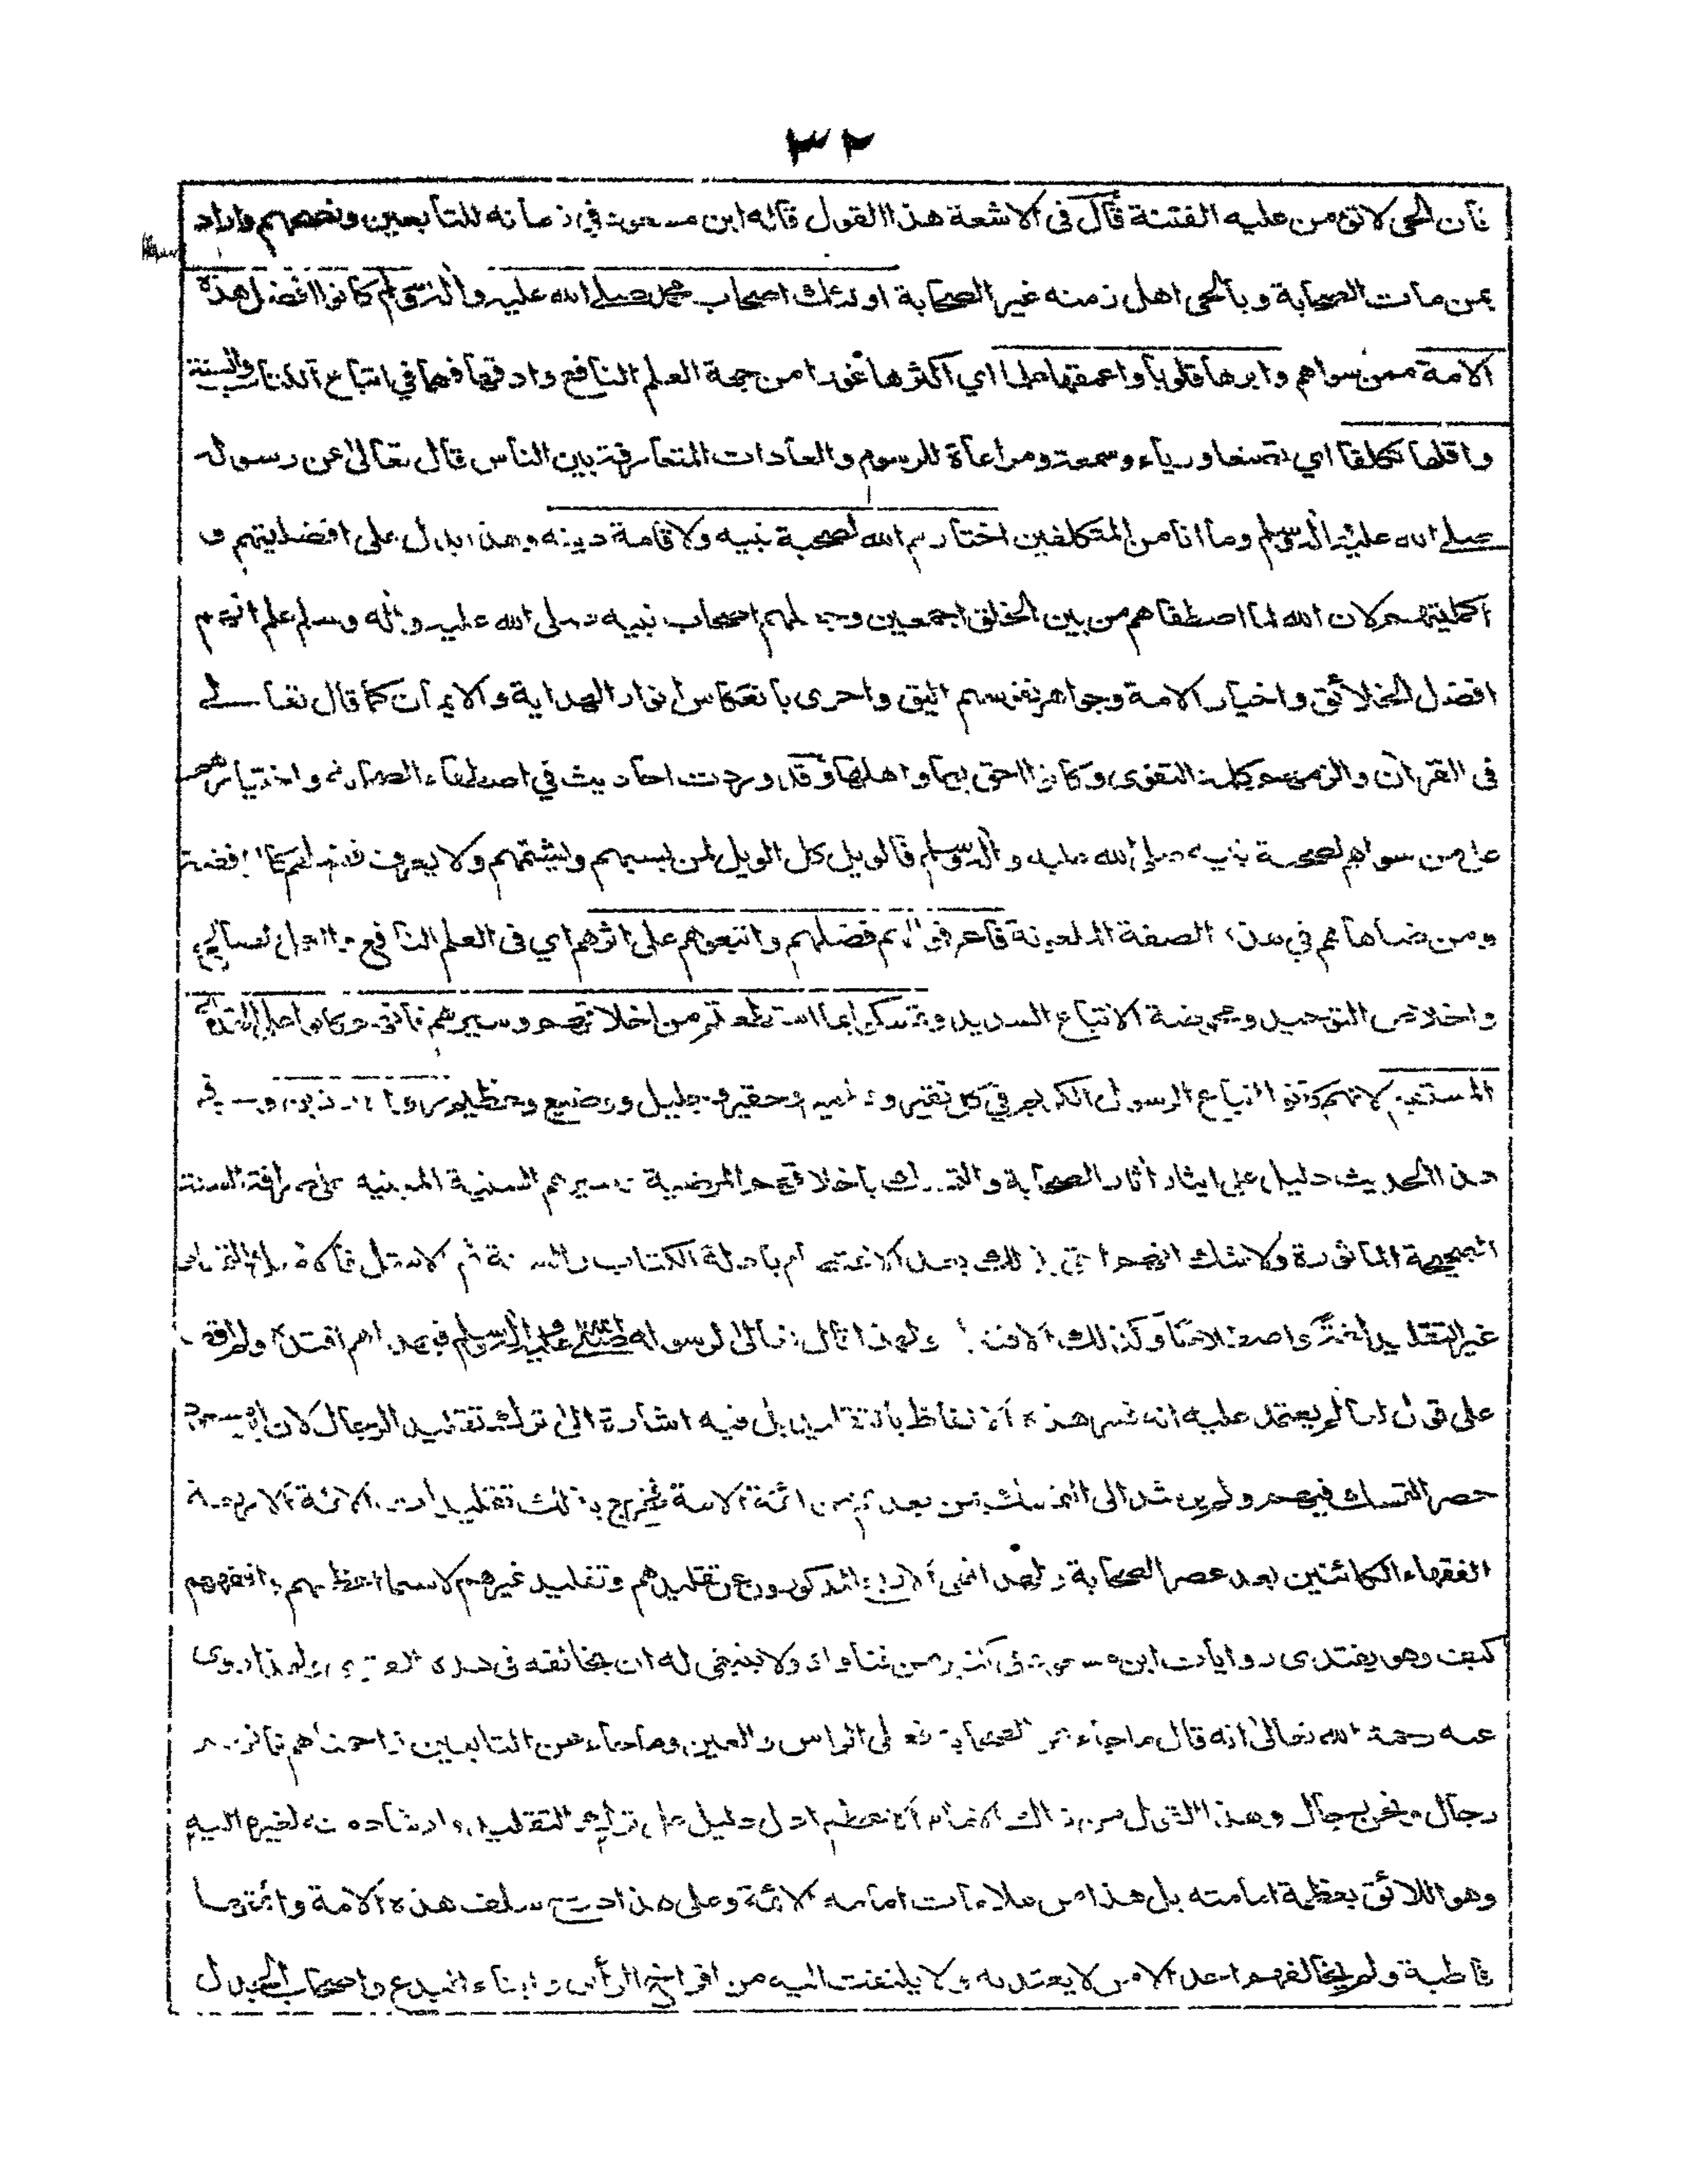 ٣٢
فان الحي لا تؤمن عليه الفتنة قال في الاشعة هذا القول قاله ابن مسعود في زمانه للتابعين ونصحهم واراد
بمن مات الصحابة وبالحي اهل زمنه غير الصحابة اولئك اصحاب محمد صلى الله عليه واله وسلم كانوا افضل هذه
الامة ممن سواهم وابرها قلوبا واعمقها علما اي اكثرها غورا من جهة العلم النافع وادقها فهما في اتباع الكتاب والسنة
واقلها تكلفا اي تصنعا ورياء وسمعة ومراعاة للرسوم والعادات المتعارفة بين الناس قال تعالى عن رسوله
صلى الله عليه واله وسلم وما انا من المتكلفين اختارهم الله لصحبة نبيه ولاقامة دينه وهذا يدل على افضليتهم و
اكمليتهم لان الله لما اصطفاهم من بين الخلق اجمعين وجعلهم اصحاب نبيه صلى الله عليه واله وسلم علم انهم
افضل الخلائق واخيار الامة وجواهر نفوسهم اليق واحرى بانعكاس انوار الهداية والايمان كما قال تعالى
في القران والزمهم كلمة التقوى وكانوا احق بها واهلها وقد وردت احاديث في اصطفاء الصحابة واختيارهم
على من سواهم لصحبة نبيه صلى الله عليه واله وسلم فالويل كل الويل لمن يسبهم ويشتمهم ولا يعرف فضلهم كالرافضة
ومن ضاهاهم في هذه الصفة الملعونة فاعرفوا لهم فضلهم واتبعوهم على اثرهم اي في العلم النافع والعمل الصالح
واخلاص التوحيد ومحوضة الاتباع السديد وتمسكوا بما استطعتم من اخلاقهم وسيرهم فانهم كانوا على الهدى
المستقيم لانهم اتباع الرسول الكريم في كل نقير و وحقير وجليل ووضيع وعظيم رواه رزين وفي
هذا الحديث دليل على ايثار أثار الصحابة والتمسك باخلاقهم المرضية وسيرهم السنية المبنية على موافقة السنة
الصحيحة الماثورة ولا شك انهم احق بذلك بعد الاعتصام بادلة الكتاب والسنة ثم الاستدلال
غير التقليد لغة واصطلاحا وكذلك الاقتداء ولهذا قال تعالى لرسوله صلى الله عليه واله وسلم فبهداهم اقتده ولم اقف
على قول لعالم يعتمد عليه انه فسر هذه الالفاظ بالتقليد بل فيه اشارة الى ترك تقليد الرجال لان
حصر التمسك فيهم ولم يرشد الى التمسك بمن بعدهم من ائمة الامة فخرج بذلك تقليدات الائمة الاربعة
الفقهاء الكائنين بعد عصر الصحابة ولهذا نهى الاربعة المذكورون عن تقليدهم وتقليد غيرهم لا سيما اعظمهم وافقههم
كيف وهو يقتدي روايات ابن مسعود في اكثر من فتاواه ولا ينبغي له ان يخالفه في هذه ولهذا روى
عنه رحمة الله تعالى انه قال ما جاء عن الصحابة فعلى الراس والعين وما جاء عن التابعين زاحمناهم فانهم
رجال ونحن رجال وهذا القول من ذاك الامام الاعظم ادل دليل على ترك التقليد وارشاده لغيره اليه
وهو اللائق بعظمة امامته بل هذا من علامات امامة الائمة وعلى هذا درج سلف هذه الامة وائمتها
قاطبة ولم يخالفهم احد الا من لا يعتد به ولا يلتفت اليه من افراخ الرأي وابناء البدع واصحاب الجدل